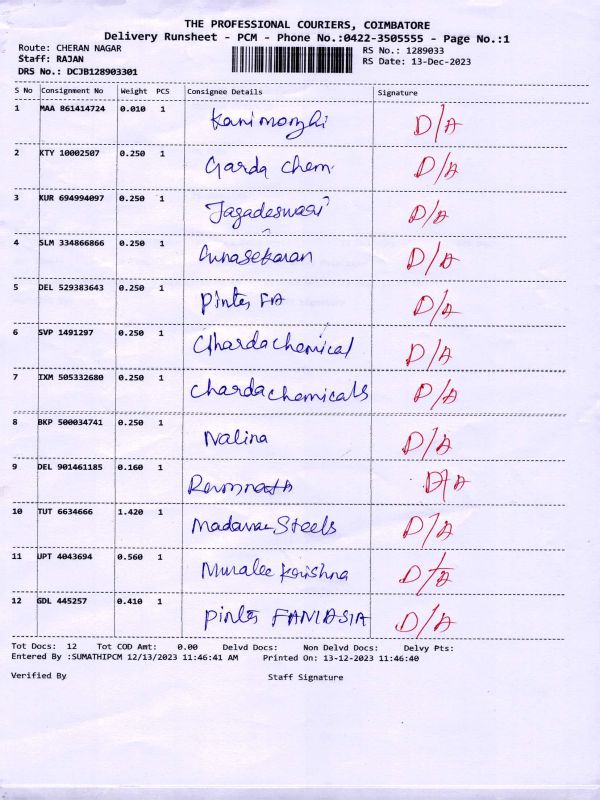 THE PROFESSIONAL COURIERS, COIMBATORE
Delivery Runsheet - PCM - Phone No.:0422-3505555 - Page No.:1
Route: CHERAN NAGAR RS No.: 1289033
Staff: RAJAN RS Date: 13-Dec-2023
DRS No.: DCJB128903301
S No Consignment No Weight PCS Consignee Details Signature
1 MAA 861414724 0.010 1 Kanimozhi D/A
2 KTY 10002507 0.250 1 Garda Chem. D/A
3 KUR 694994097 0.250 1 Jagadeswari D/A
4 SLM 334866866 0.250 1 Gunasekaran D/A
5 DEL 529383643 0.250 1 Pintes FA D/A
6 SVP 1491297 0.250 1 Ghardachemical D/A
7 IXM 505332680 0.250 1 Ghardachemicals D/A
8 BKP 500034741 0.250 1 Nalina D/A
9 DEL 901461185 0.160 1 D/A
10 TUT 6634666 1.420 1 Steels D/A
11 UPT 4043694 0.560 1 Muralee Krishna D/A
12 GDL 445257 0.410 1 Pintes FANTASIA D/A
Tot Docs: 12 Tot COD Amt: 0.00 Delvd Docs: Non Delvd Docs: Delvy Pts:
Entered By :SUMATHIPCM 12/13/2023 11:46:41 AM Printed On: 13-12-2023 11:46:40
Verified By Staff Signature